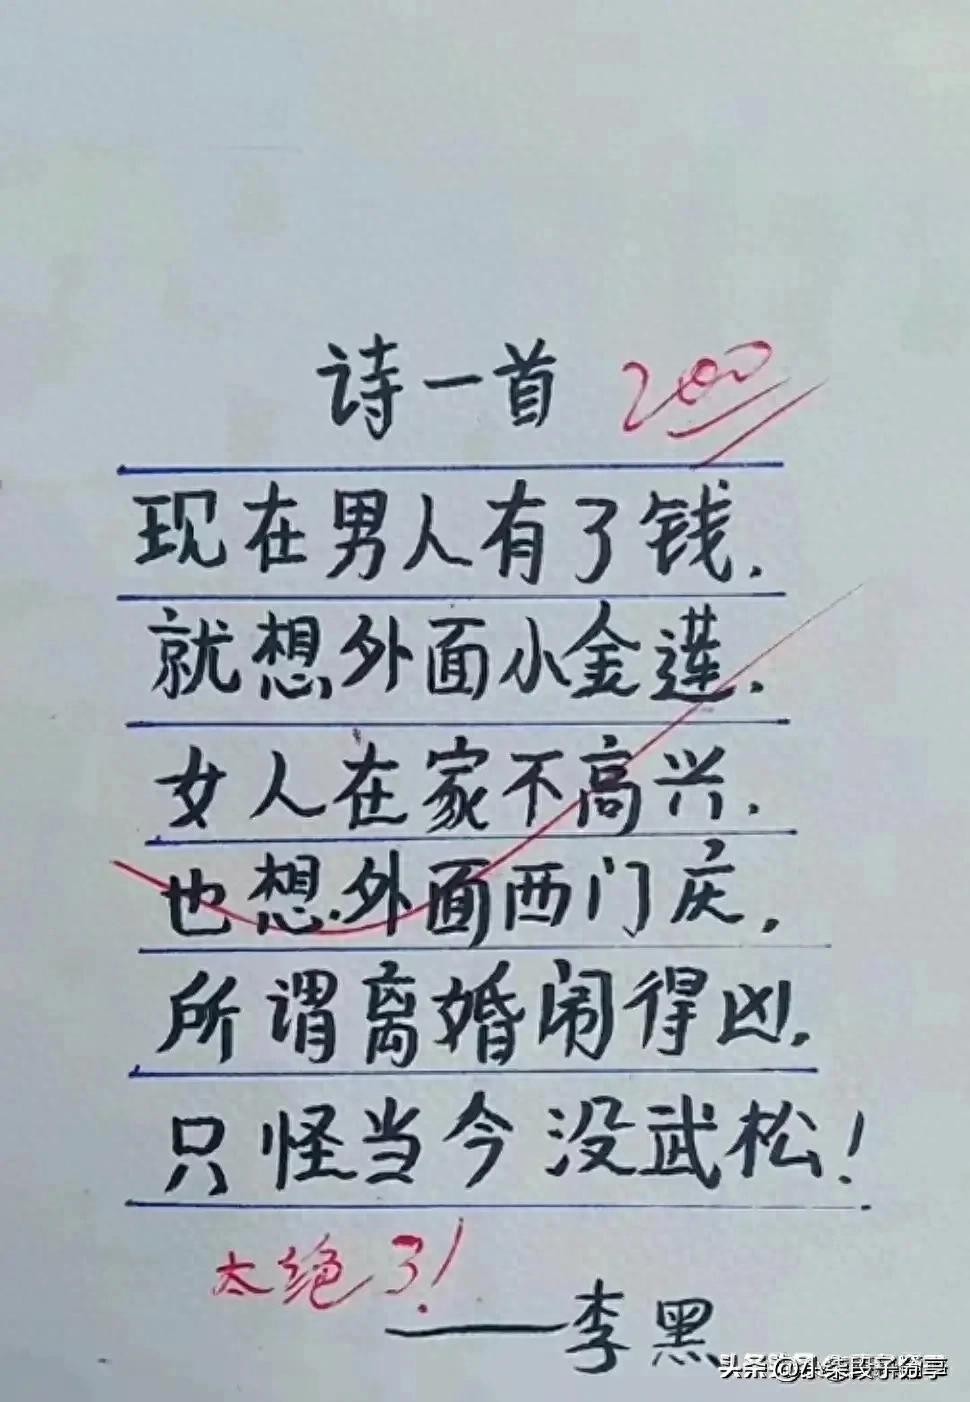 诗一首 200
现在男人有了钱.
就想外面小金莲.
女人在家不高兴.
也想外面西门庆,
所谓离婚闹得凶,
只怪当今没武松！
太绝了！
——李黑
头条 @小柴段子分享